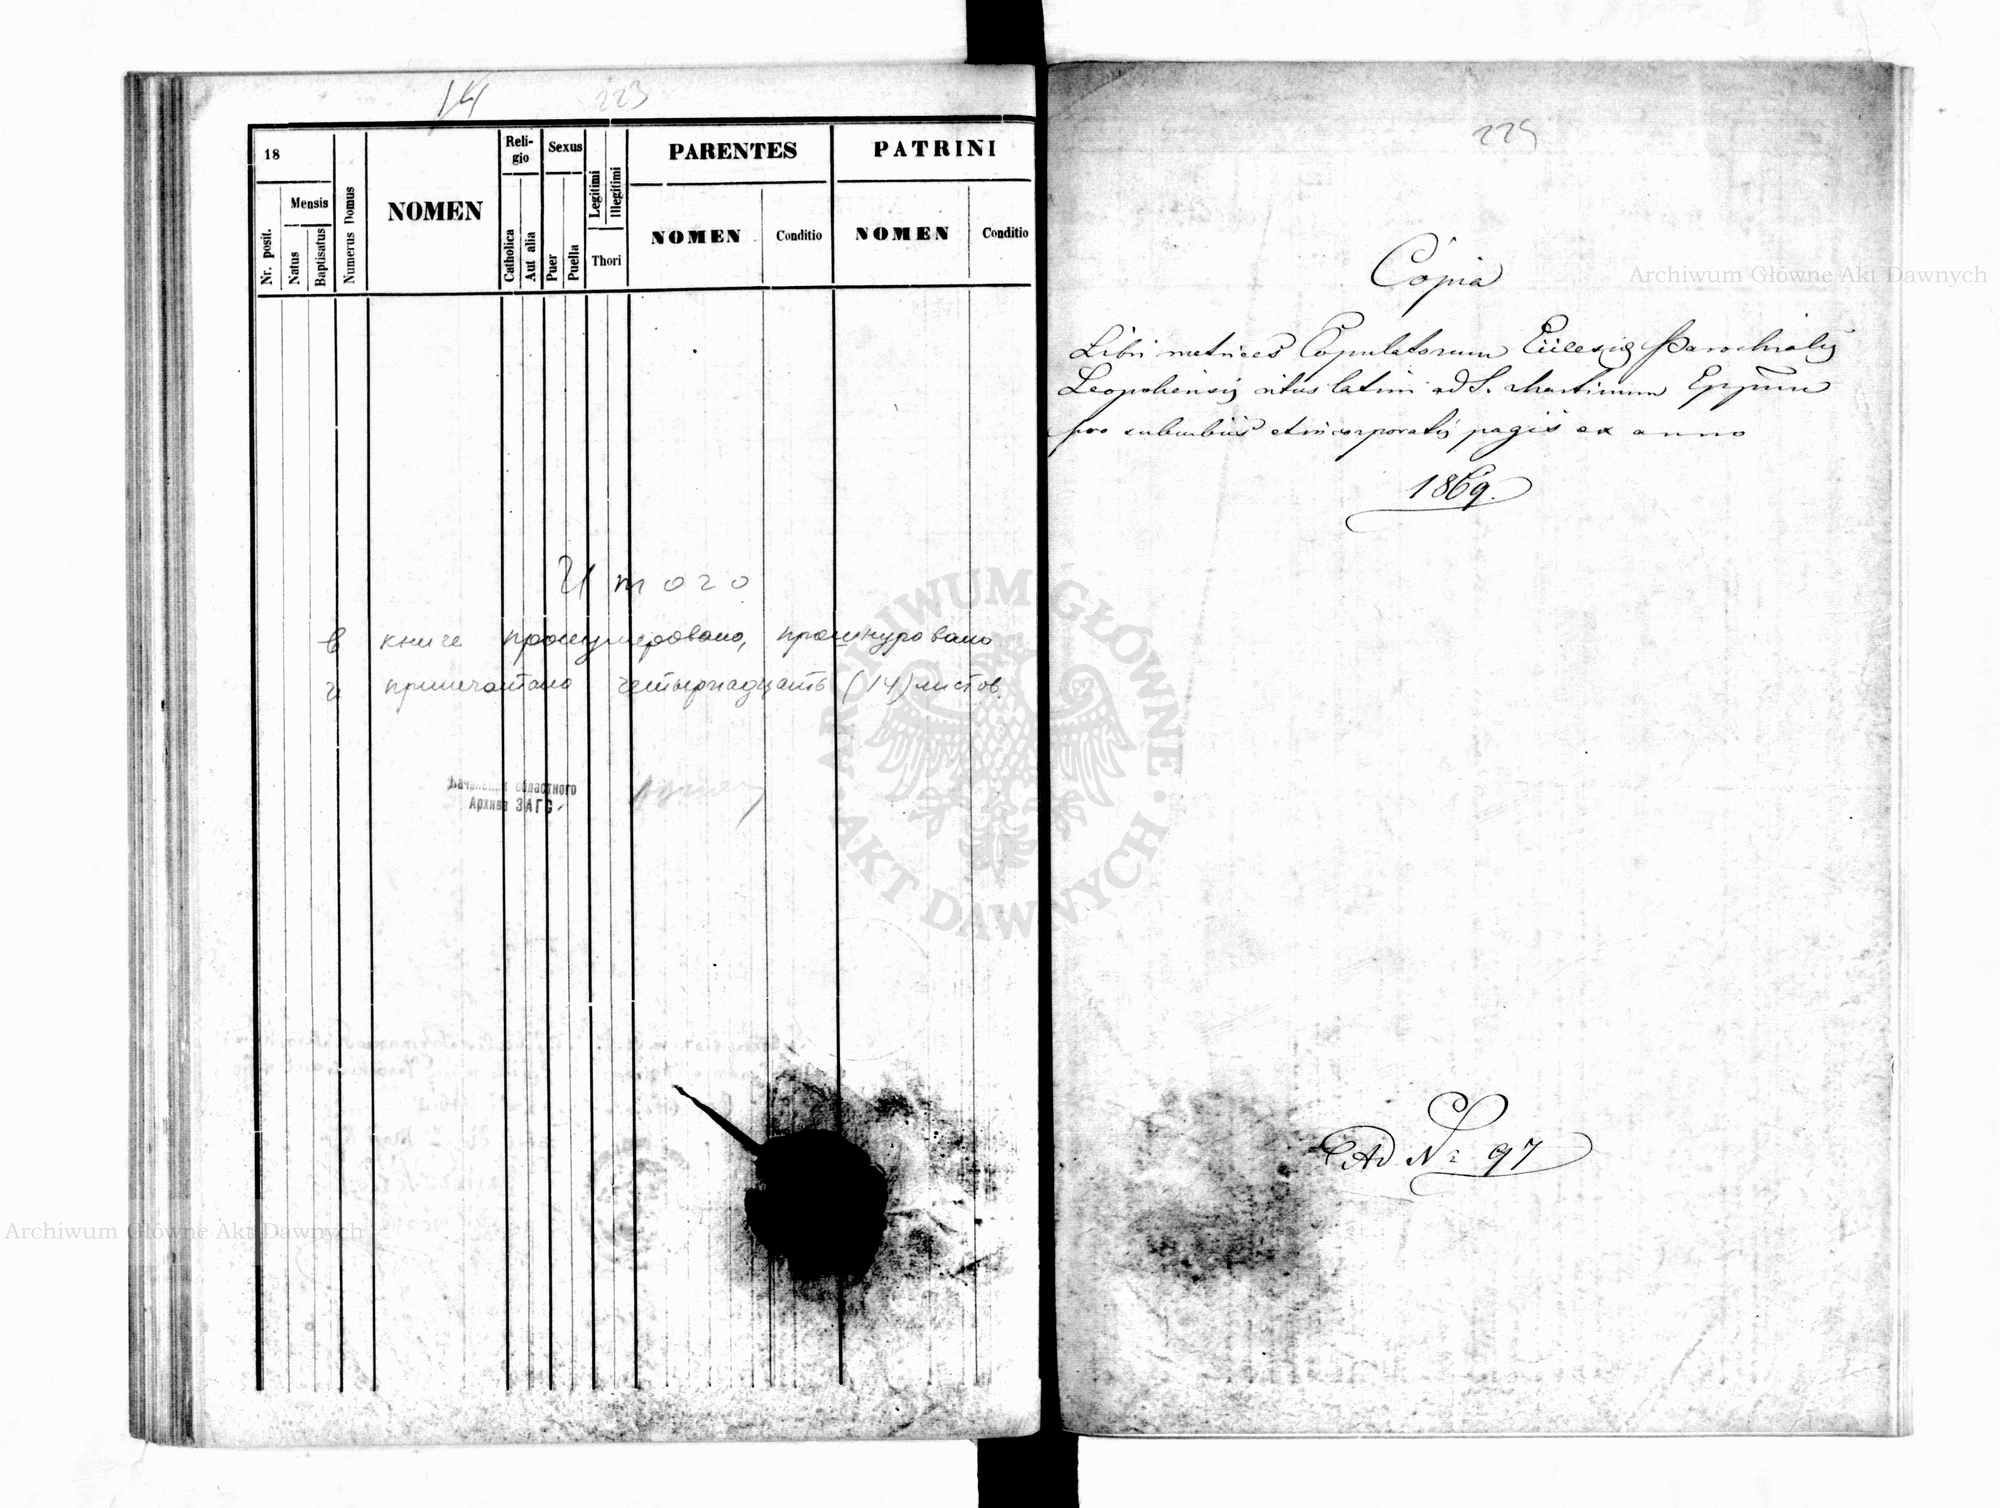 14 223
18
Nr. posit.
Mensis
Natus
Baptisatus
Numerus Domus
NOMEN
Reli-
gio
Catholica
Aut alia
Sexus
Puer
Puella
Legitimi
Illegitimi
Thori
PARENTES
NOMEN
Conditio
PATRINI
NOMEN
Conditio
Итого
в книге пронумеровано, прошнуровано
и припечатано четырнадцать (14) листов.
областного
Архива ЗАГС
Copia
Libri metrices Copulatorum Ecclesiæ Parochialis
Leopoliensis ritus latini ad S. Martinum Eppum
pro suburbiis et incorporatis pagis ex anno
1869.
Ad No 97
Archiwum Główne Akt Dawnych
Archiwum Główne Akt Dawnych
ARCHIWUM GŁÓWNE · AKT DAWNYCH ·